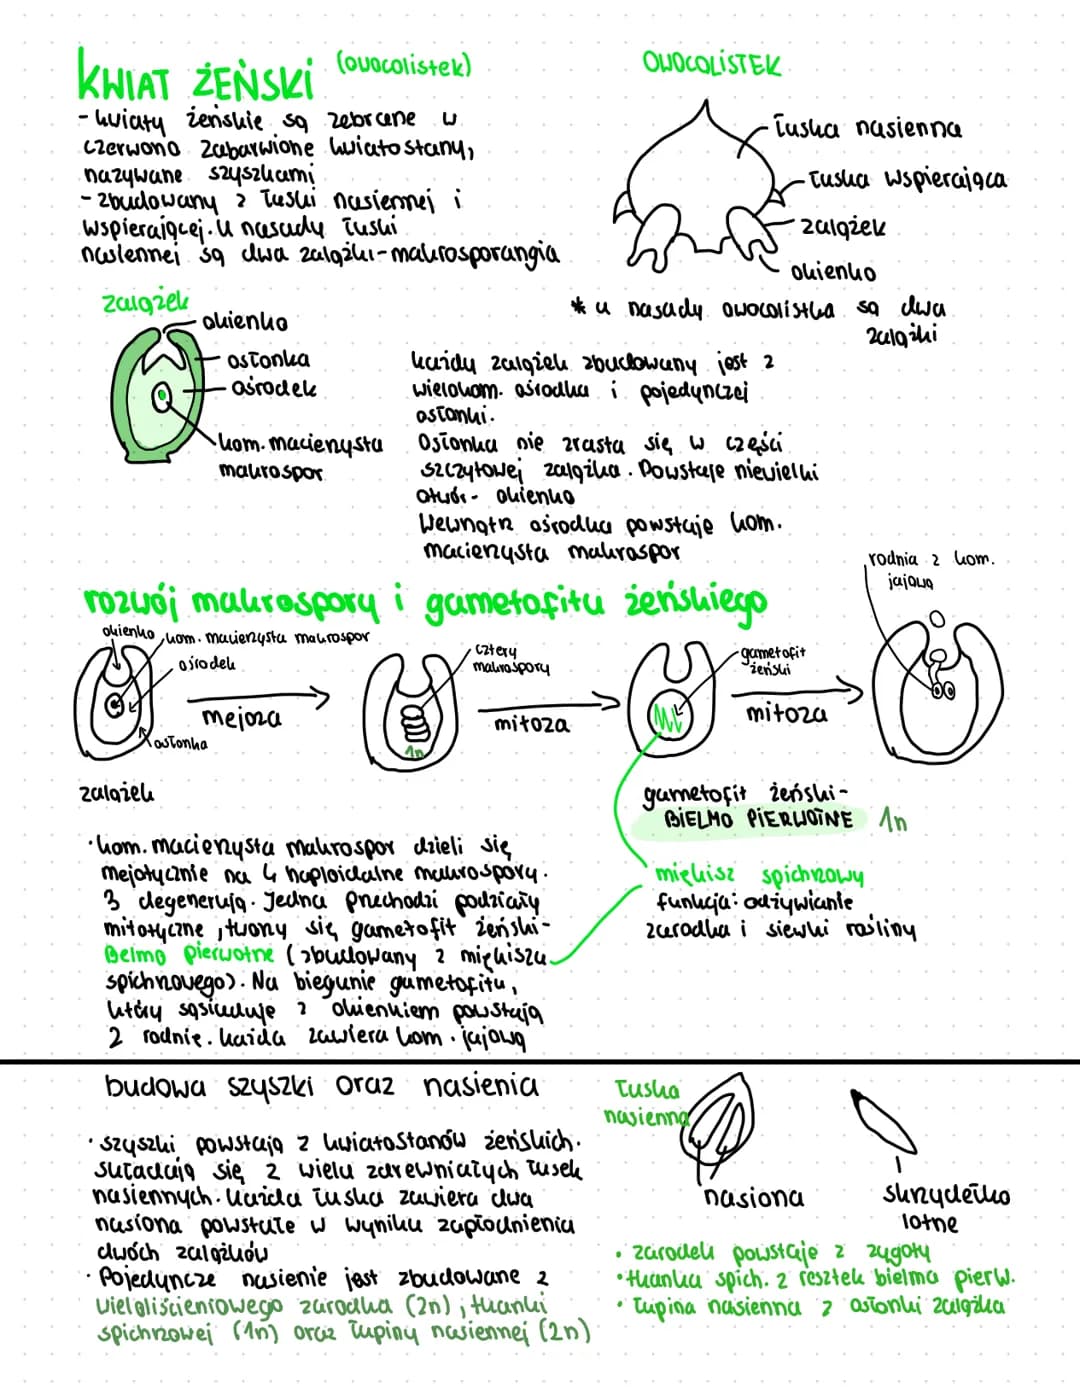 KWIAT ŻEŃSKI (owocolistek)
- kwiaty żeńskie są zebrane w
czerwono zabarwione kwiatostany,
nazywane szyszkami
- zbudowany z łuski nasiennej i
wspierającej. U nasady łuski
nasiennej są dwa zalążki - makrosporangia
OWOCOLISTEK
łuska nasienna
łuska wspierająca
zalążek
okienko
* u nasady owocolistka są dwa
zalążki
zalążek
okienko
osłonka
ośrodek
kom. macierzysta
makrospor
każdy zalążek zbudowany jest z
wielokom. ośrodka i pojedynczej
osłonki.
Osłonka nie zrasta się w części
szczytowej zalążka. Powstaje niewielki
otwór - okienko
Wewnątrz ośrodka powstaje kom.
macierzysta makrospor
rozwój makrospory i gametofitu żeńskiego
okienko
kom. macierzysta makrospor
ośrodek
osłonka
zalążek
mejoza
cztery
makrospory
1n
mitoza
gametofit
żeński
mitoza
rodnia z kom.
jajową
gametofit żeński -
BIELMO PIERWOTNE 1n
miękisz spichrzowy
funkcja: odżywianie
zarodka i siewki rośliny
• kom. macierzysta makrospor dzieli się
mejotycznie na 4 haploidalne makrospory.
3 degenerują. Jedna przechodzi podziały
mitotyczne, tworzy się gametofit żeński -
Belmo pierwotne (zbudowany z miękiszu
spichrzowego). Na biegunie gametofitu,
który sąsiaduje z okienkiem powstają
2 rodnie. każda zawiera kom. jajową
budowa szyszki oraz nasienia
• szyszki powstają z kwiatostanów żeńskich.
składają się z wielu zdrewniałych łusek
nasiennych. Każda łuska zawiera dwa
nasiona powstałe w wyniku zapłodnienia
dwóch zalążków
• Pojedyncze nasienie jest zbudowane z
wieloliścieniowego zarodka (2n), tkanki
spichrzowej (1n) oraz łupiny nasiennej (2n)
łuska
nasienna
nasiona
skrzydełko
lotne
• zarodek powstaje z zygoty
• tkanka spich. z resztek bielma pierw.
• łupina nasienna z osłonki zalążka